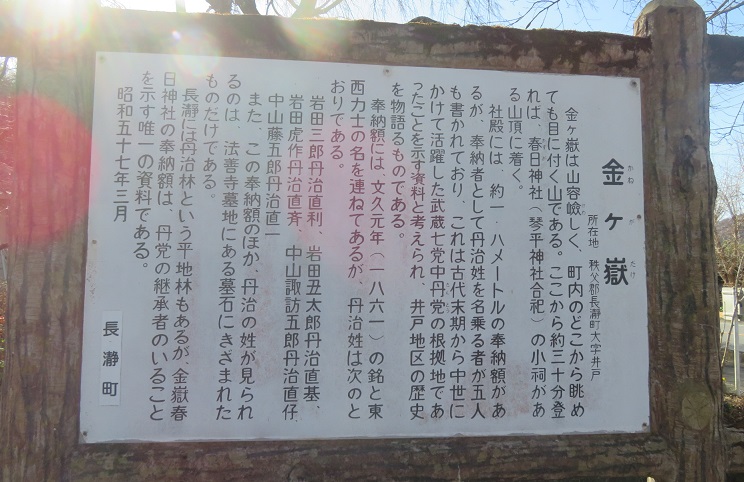 金ヶ嶽
かねがたけ
所在地　秩父郡長瀞町大字井戸
金ヶ嶽は山容嶮しく、町内のどこから眺め
ても目に付く山である。ここから約三十分登
れば、春日神社（琴平神社合祀）の小祠があ
る山頂に着く。
社殿には、約一．八メートルの奉納額があ
るが、奉納者として丹治姓を名乗る者が五人
も書かれており、これは古代末期から中世に
かけて活躍した武蔵七党中丹党の根拠地であ
ったことを示す資料と考えられ、井戸地区の歴史
を物語るものである。
奉納額には、文久元年（一八六一）の銘と東
西力士の名を連ねてあるが、丹治姓は次のと
おりである。
岩田三郎丹治直利、岩田丑太郎丹治直基、
岩田虎作丹治直斉、中山諏訪五郎丹治直仔、
中山藤五郎丹治直一
また、この奉納額のほか、丹治の姓が見られ
るのは、法善寺墓地にある墓石にきざまれた
ものだけである。
長瀞には丹治林という平地林もあるが、金嶽春
日神社の奉納額は、丹党の継承者のいること
を示す唯一の資料である。
昭和五十七年三月
長瀞町